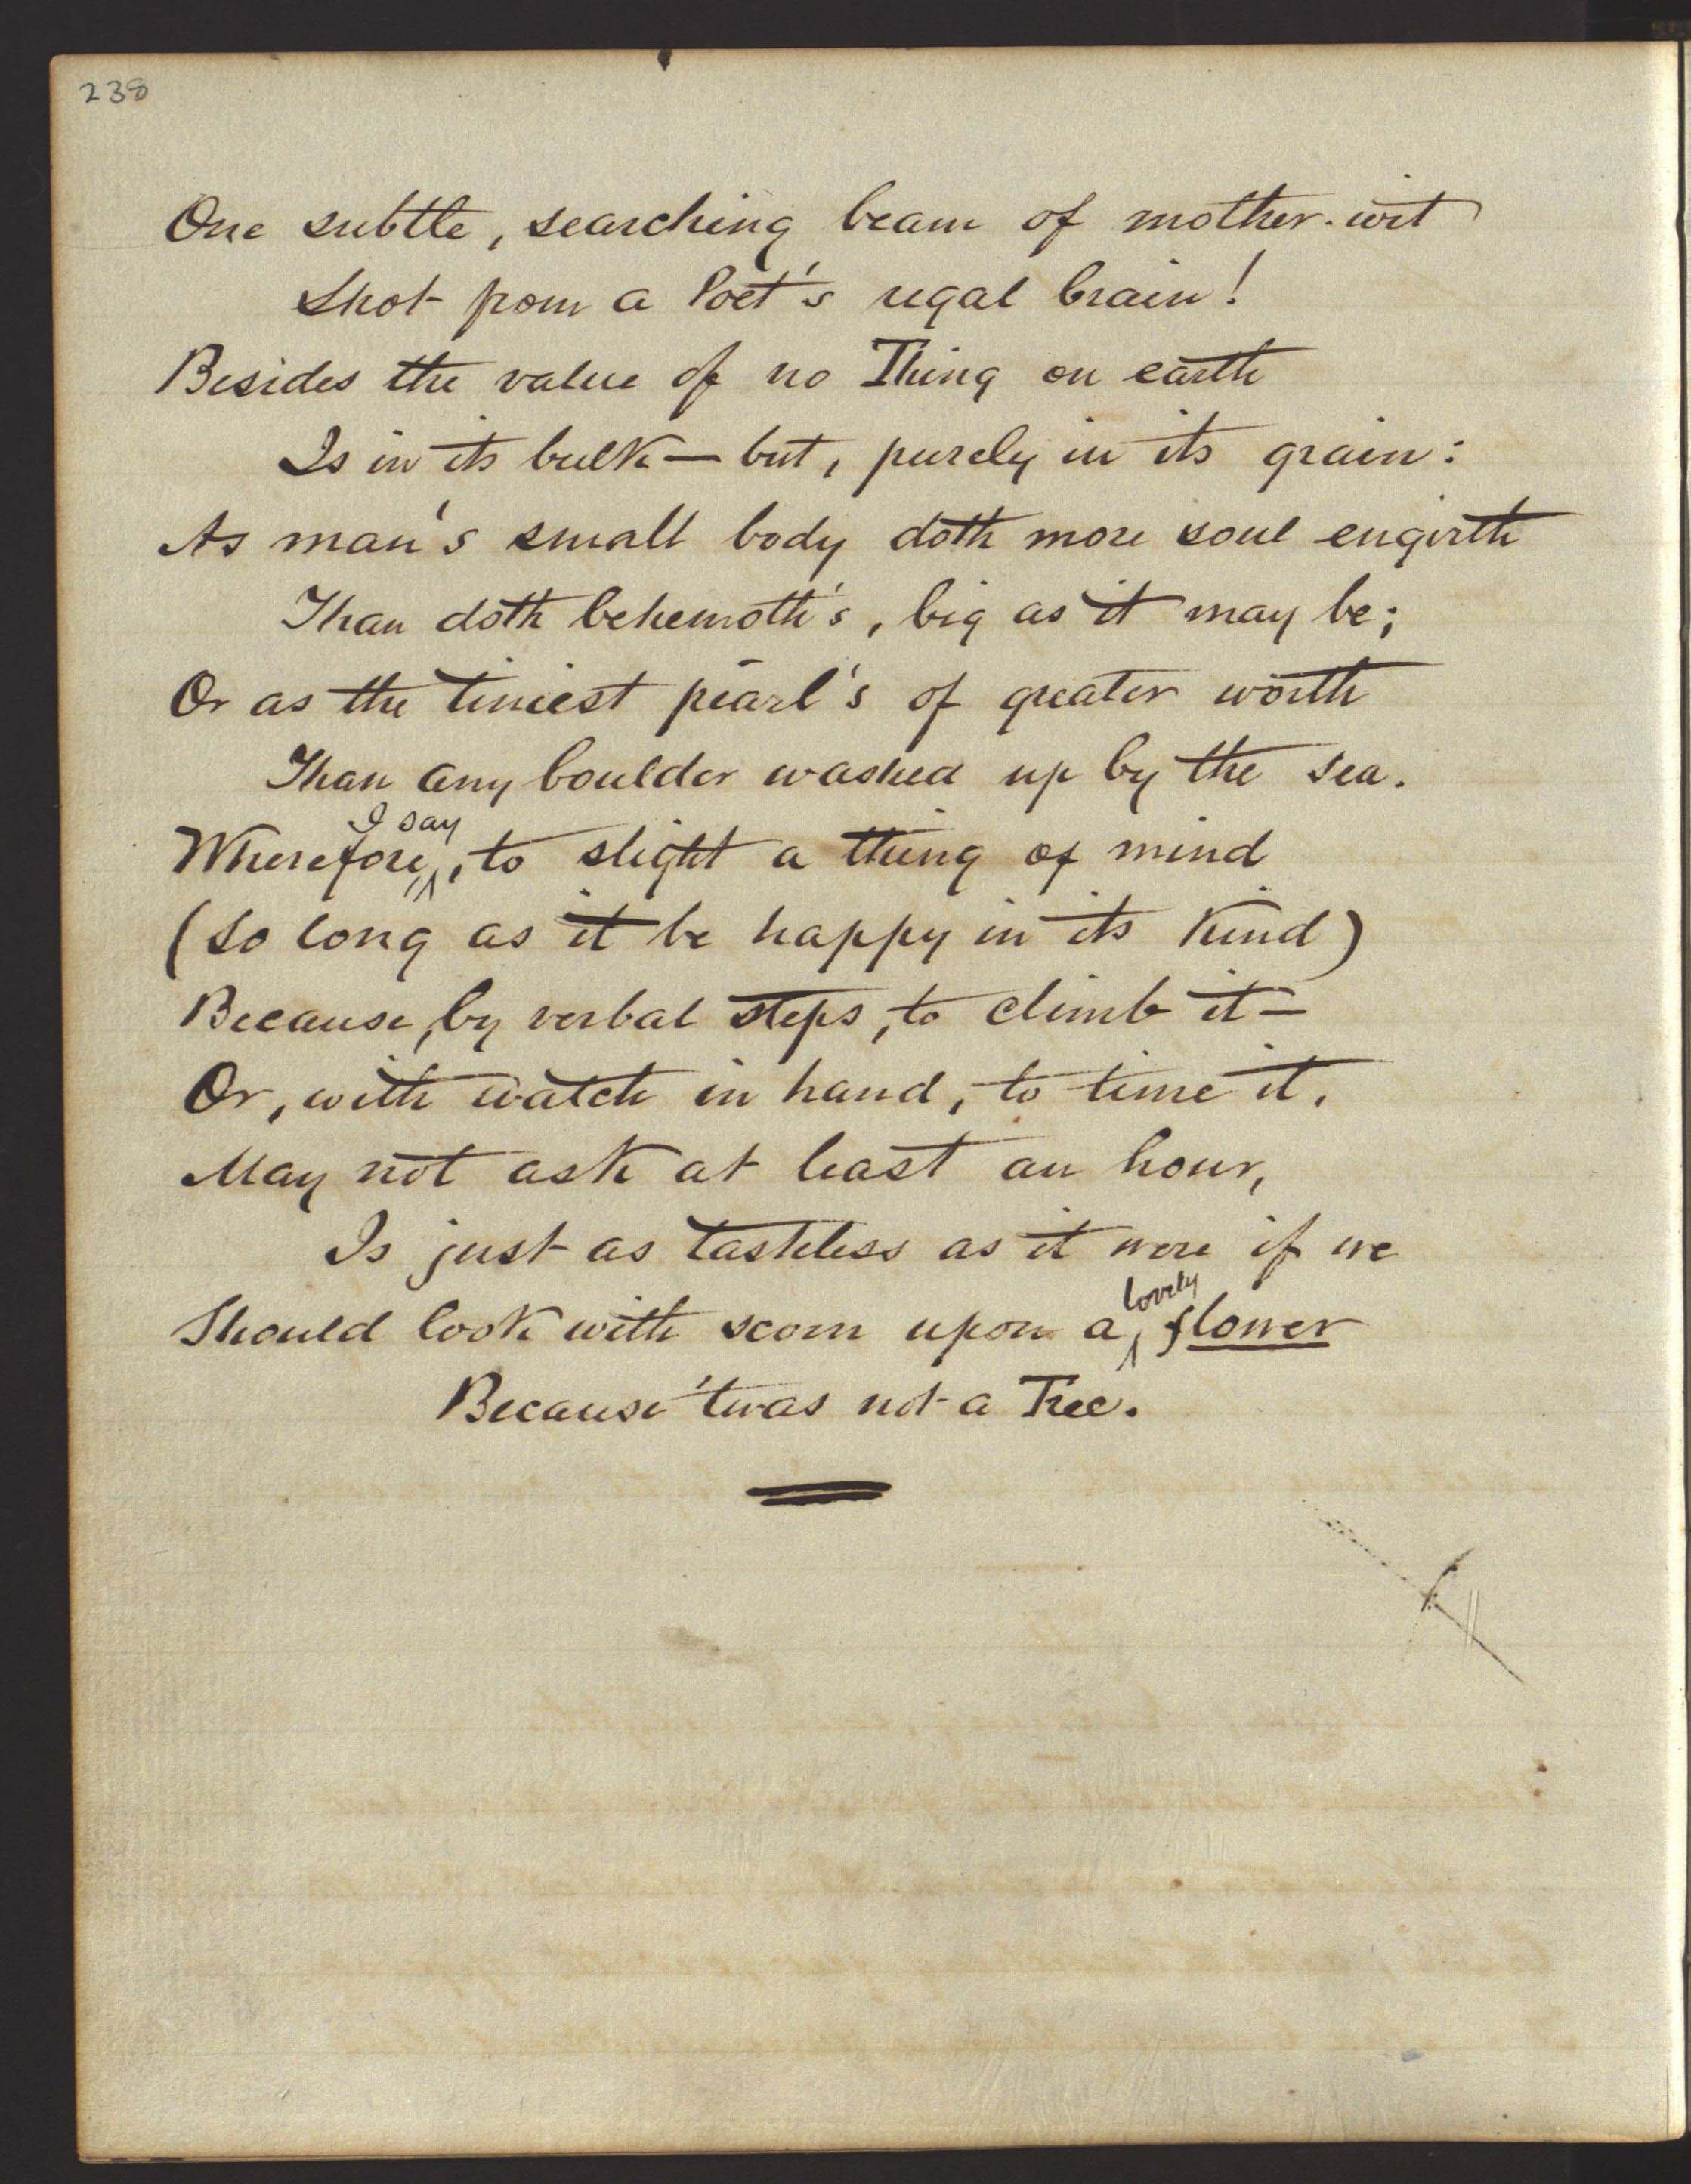 238
One subtle, searching beam of mother-wit
Shot from a Poet's regal brain!
Besides the value of no Thing on earth
Is in its bulk — but, purely in its grain:
As man's small body doth more soul engirth
Than doth behemoth's, big as it may be;
Or as the tiniest pearl's of greater worth
Than any boulder washed up by the sea.
I say
Wherefore, ^, to slight a thing of mind
(So long as it be happy in its kind)
Because, by verbal steps, to climb it —
Or, with watch in hand, to time it,
May not ask at least an hour,
Is just as tasteless as it were if we
lovely
Should look with scorn upon a ^ flower
Because 'twas not a Tree.